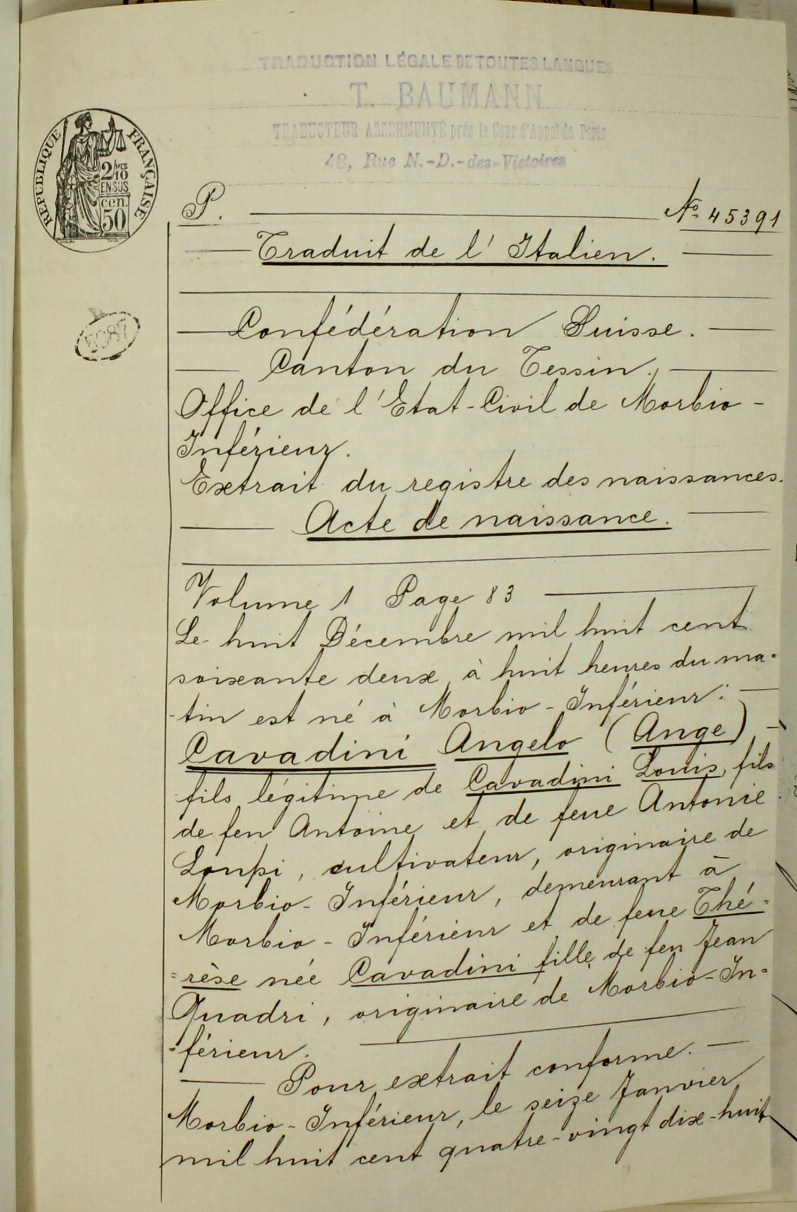 TRADUCTION LÉGALE DE TOUTES LANGUES
T. BAUMANN
TRADUCTEUR ASSERMENTÉ près la Cour d'Appel de Paris
48, Rue N.-D.-des-Victoires
RÉPUBLIQUE FRANÇAISE
2/10 EN SUS
cen. 50
5087
P. N° 45391
Traduit de l'Italien.
Confédération Suisse.
Canton du Tessin.
Office de l'Etat-Civil de Morbio-
Inférieur.
Extrait du registre des naissances.
Acte de naissance.
Volume 1 Page 83
Le huit Décembre mil huit cent
soixante deux à huit heures du ma-
-tin est né à Morbio-Inférieur:
Cavadini Angelo (Ange)
fils légitime de Cavadini Louis, fils
de feu Antoine et de feue Antonie
Loupi, cultivateur, originaire de
Morbio-Inférieur, demeurant à
Morbio-Inférieur et de feue Thé-
-rèse née Cavadini fille de feu Jean
Quadri, originaire de Morbio-In-
-férieur.
Pour extrait conforme.
Morbio-Inférieur, le seize Janvier
mil huit cent quatre-vingt dix-huit